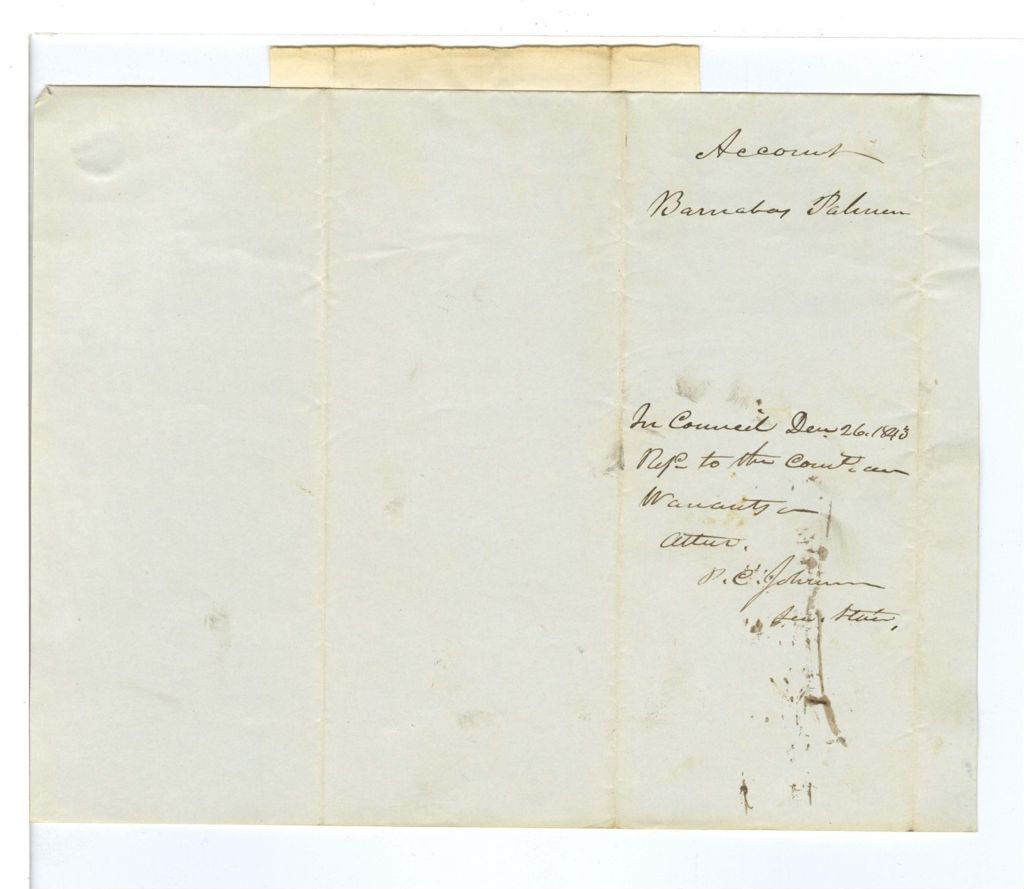 Account
Barnabas Palmer
In Council Dec 26. 1843
Refd to the Comtee on
Warrants
Attest.
P. C. Johnson
Sec. State.